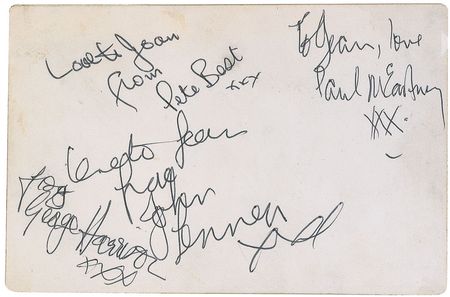 Love to Jean
from
Pete Best
xxx
To Jean, love
Paul McCartney
XXX.
Love to Jean
from
John
Lennon
from
George Harrison
xxx